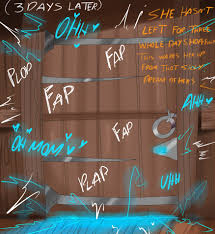 (3 DAYS LATER)
OHH
SHE HASN'T
LEFT FOR THREE
WHOLE DAYS
THIS
FROM THAT
PLOP
FAP
FAP
AHH
OH MOM
FAP
PLAP
UHH